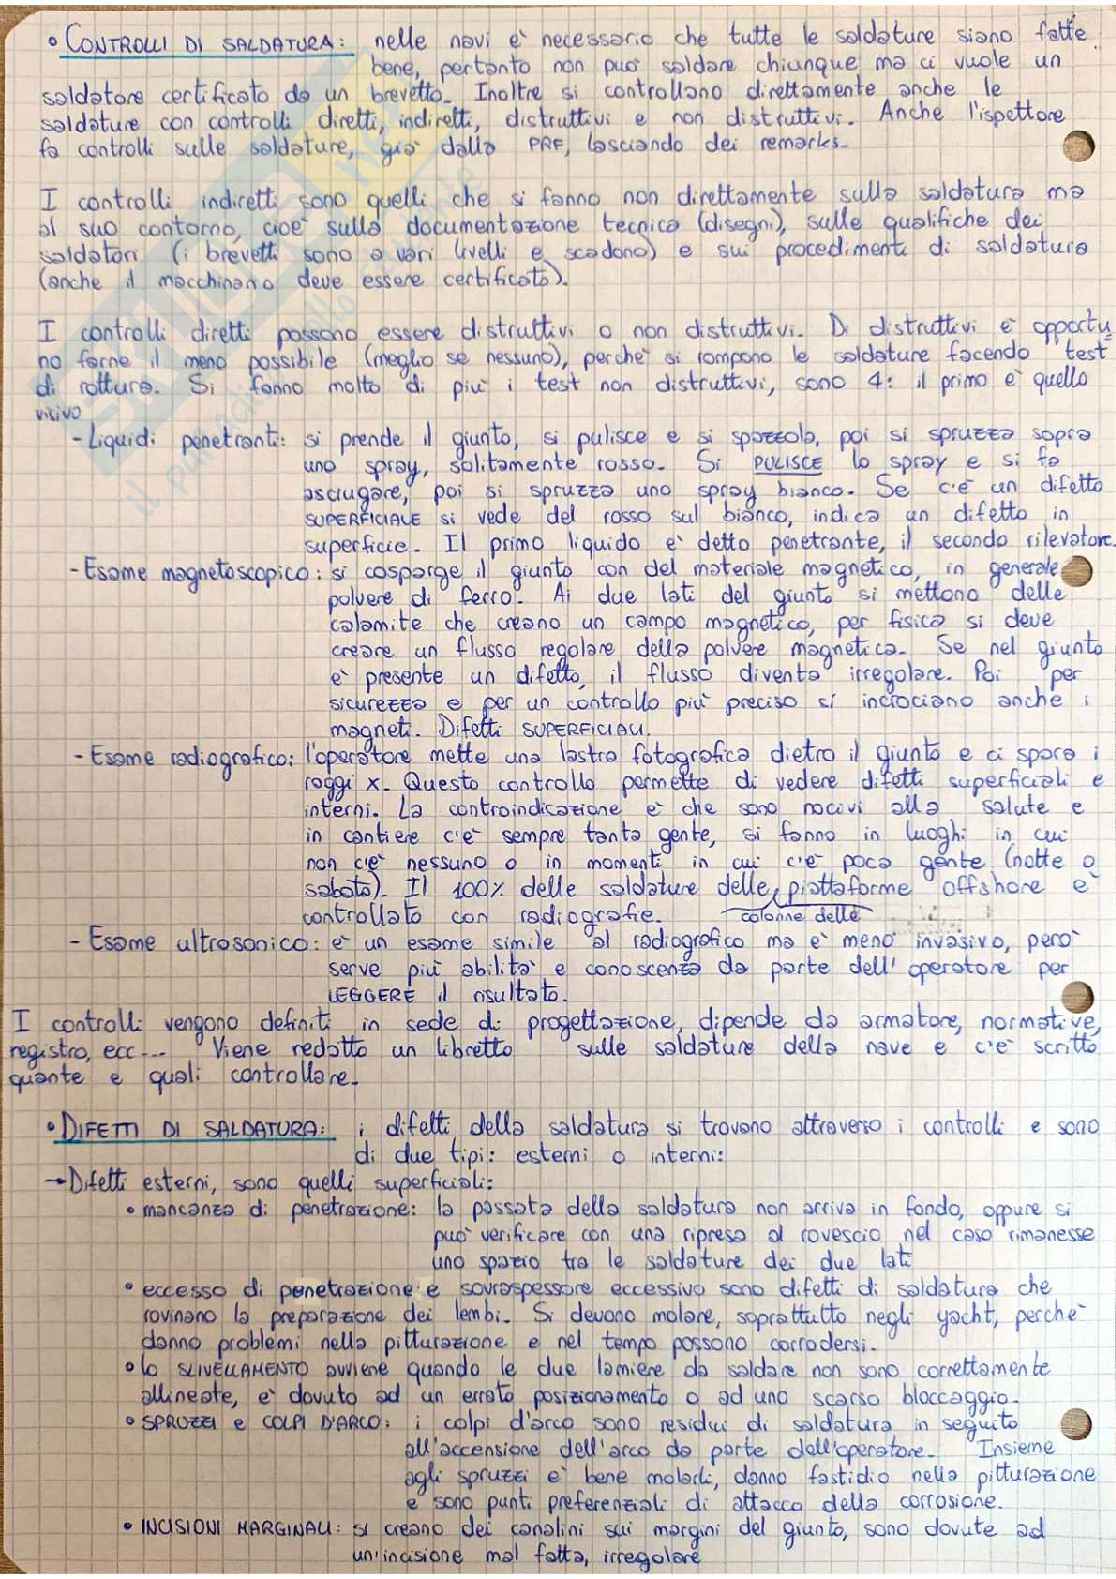 • CONTROLLI DI SALDATURA: nelle navi è necessario che tutte le saldature siano fatte
bene, pertanto non può saldare chiunque ma ci vuole un
saldatore certificato da un brevetto. Inoltre si controllano direttamente anche le
saldature con controlli diretti, indiretti, distruttivi e non distruttivi. Anche l'ispettore
fa controlli sulle saldature, già dalla PRF, lasciando dei remarks.
I controlli indiretti sono quelli che si fanno non direttamente sulla saldatura ma
al suo contorno, cioè sulla documentazione tecnica (disegni), sulle qualifiche dei
saldatori (i brevetti sono a vari livelli e scadono) e sui procedimenti di saldatura
(anche il macchinario deve essere certificato).
I controlli diretti possono essere distruttivi o non distruttivi. Di distruttivi è opportu
no farne il meno possibile (meglio se nessuno), perchè si rompono le saldature facendo test
di rottura. Si fanno molto di più i test non distruttivi, sono 4: il primo è quello
visivo
- Liquidi penetranti: si prende il giunto, si pulisce e si spazzola, poi si spruzza sopra
uno spray, solitamente rosso. Si PULISCE lo spray e si fa
asciugare, poi si spruzza uno spray bianco. Se c'è un difetto
SUPERFICIALE si vede del rosso sul bianco, indica un difetto in
superficie. Il primo liquido è detto penetrante, il secondo rilevatore.
- Esame magnetoscopico: si cosparge il giunto con del materiale magnetico, in generale
polvere di ferro. Ai due lati del giunto si mettono delle
calamite che creano un campo magnetico, per fisica si deve
creare un flusso regolare della polvere magnetica. Se nel giunto
è presente un difetto, il flusso diventa irregolare. Poi per
sicurezza e per un controllo più preciso si incrociano anche i
magneti. Difetti SUPERFICIALI.
- Esame radiografico: l'operatore mette una lastra fotografica dietro il giunto e ci spara i
raggi x. Questo controllo permette di vedere difetti superficiali e
interni. La controindicazione è che sono nocivi alla salute e
in cantiere c'è sempre tanta gente, si fanno in luoghi in cui
non c'è nessuno o in momenti in cui c'è poca gente (notte o
sabato). Il 100% delle saldature delle piattaforme offshore è
controllato con radiografie. colonne delle
- Esame ultrasonico: è un esame simile al radiografico ma è meno invasivo, però
serve più abilità e conoscenza da parte dell'operatore per
LEGGERE il risultato.
I controlli vengono definiti in sede di progettazione, dipende da armatore, normative,
registro, ecc... Viene redatto un libretto sulle saldature della nave e c'è scritto
quante e quali controllare.
• DIFETTI DI SALDATURA: i difetti della saldatura si trovano attraverso i controlli e sono
di due tipi: esterni o interni:
→ Difetti esterni, sono quelli superficiali:
• mancanza di penetrazione: la passata della saldatura non arriva in fondo, oppure si
può verificare con una ripresa al rovescio nel caso rimanesse
uno spazio tra le saldature dei due lati
• eccesso di penetrazione e sovraspessore eccessivo sono difetti di saldatura che
rovinano la preparazione dei lembi. Si devono molare, soprattutto negli yacht, perchè
danno problemi nella pitturazione e nel tempo possono corrodersi.
• lo SLIVELLAMENTO avviene quando le due lamiere da saldare non sono correttamente
allineate, è dovuto ad un errato posizionamento o ad uno scarso bloccaggio.
• SPRUZZI e COLPI D'ARCO: i colpi d'arco sono residui di saldatura in seguito
all'accensione dell'arco da parte dell'operatore. Insieme
agli spruzzi è bene molarli, danno fastidio nella pitturazione
e sono punti preferenziali di attacco della corrosione.
• INCISIONI MARGINALI: si creano dei canalini sui margini del giunto, sono dovute ad
un'incisione mal fatta, irregolare